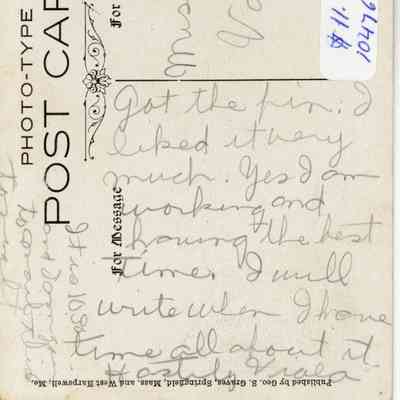 PHOTO-TYPE
POST CAR
For
For Message
Mis
$11.
10476
Got the pin. I
liked it very
much. Yes I am
working and
having the best
time. I will
write when I have
time all about it
Hastily Viola
Published by Geo. S. Graves, Springfield, Mass. and West Harpswell, Me.